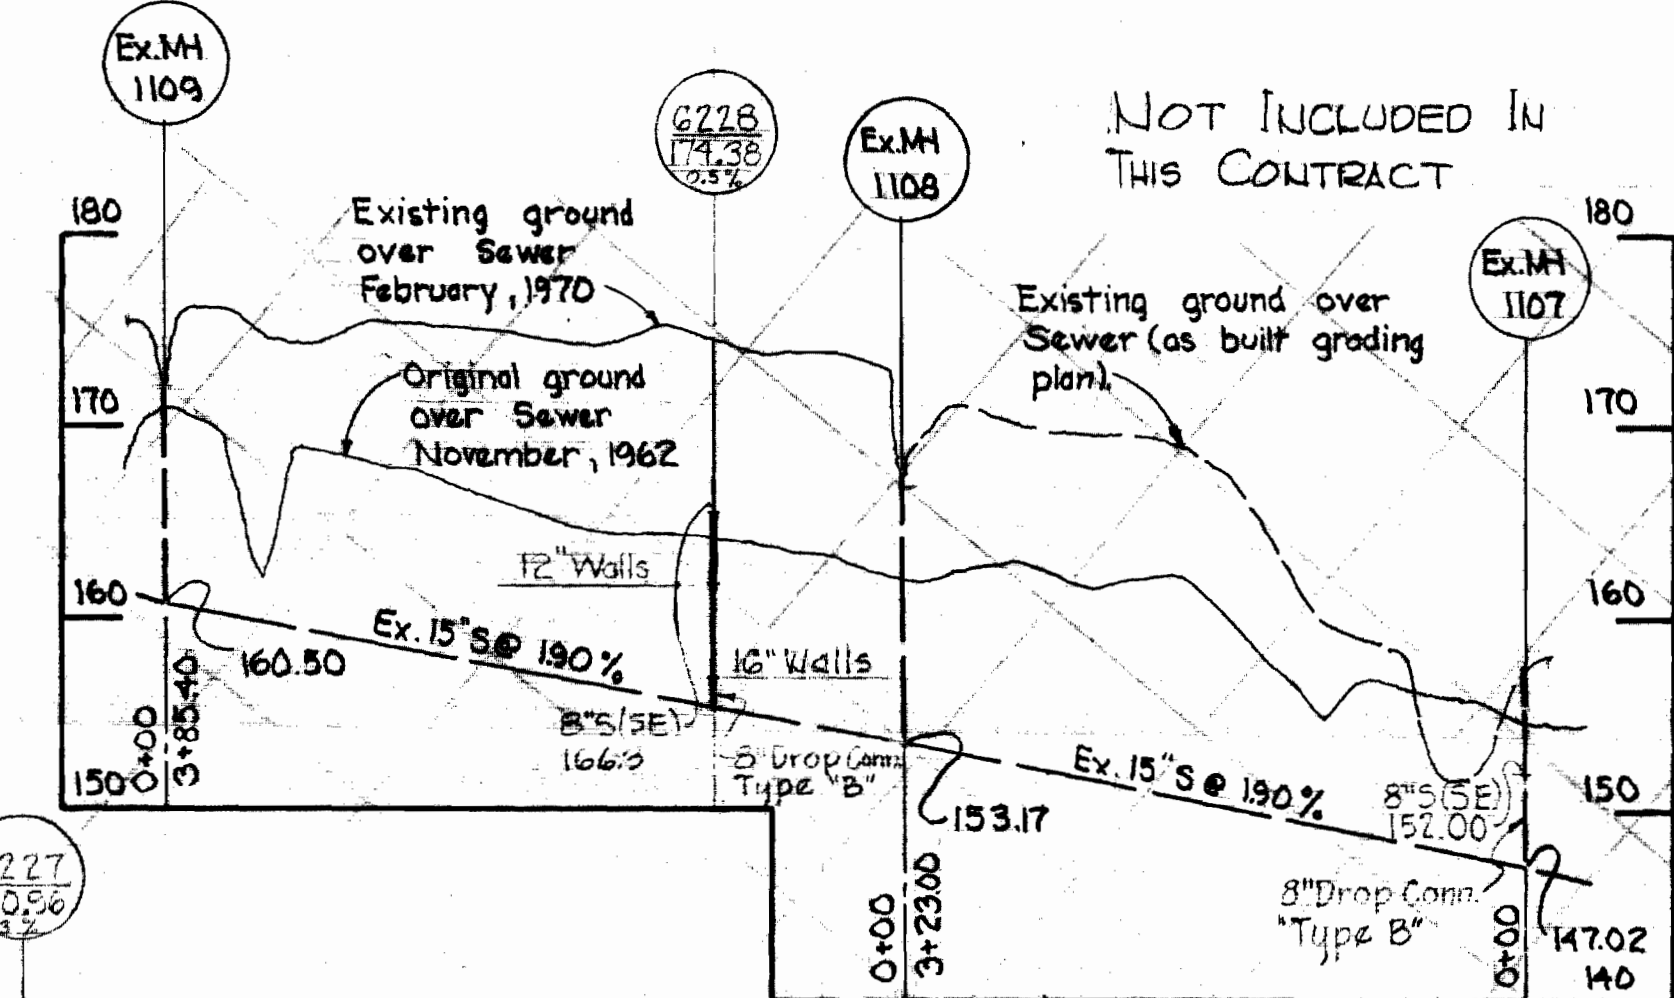 Ex.MH
1109
6228
174.38
0.5%
Ex.MH
1108
NOT INCLUDED IN
THIS CONTRACT
Ex.MH
1107
180
170
160
150
180
170
160
150
140
Existing ground
over Sewer
February, 1970
Original ground
over Sewer
November, 1962
Existing ground over
Sewer (as built grading
plan).
12" Walls
16" Walls
Ex. 15" S @ 1.90%
160.50
0+00
3+85.40
8"S(SE)
166.3
8" Drop Conn.
Type "B"
153.17
Ex. 15" S @ 1.90%
8"S(SE)
152.00
8" Drop Conn.
"Type B"
0+00
3+23.00
0+00
147.02
227
0.56